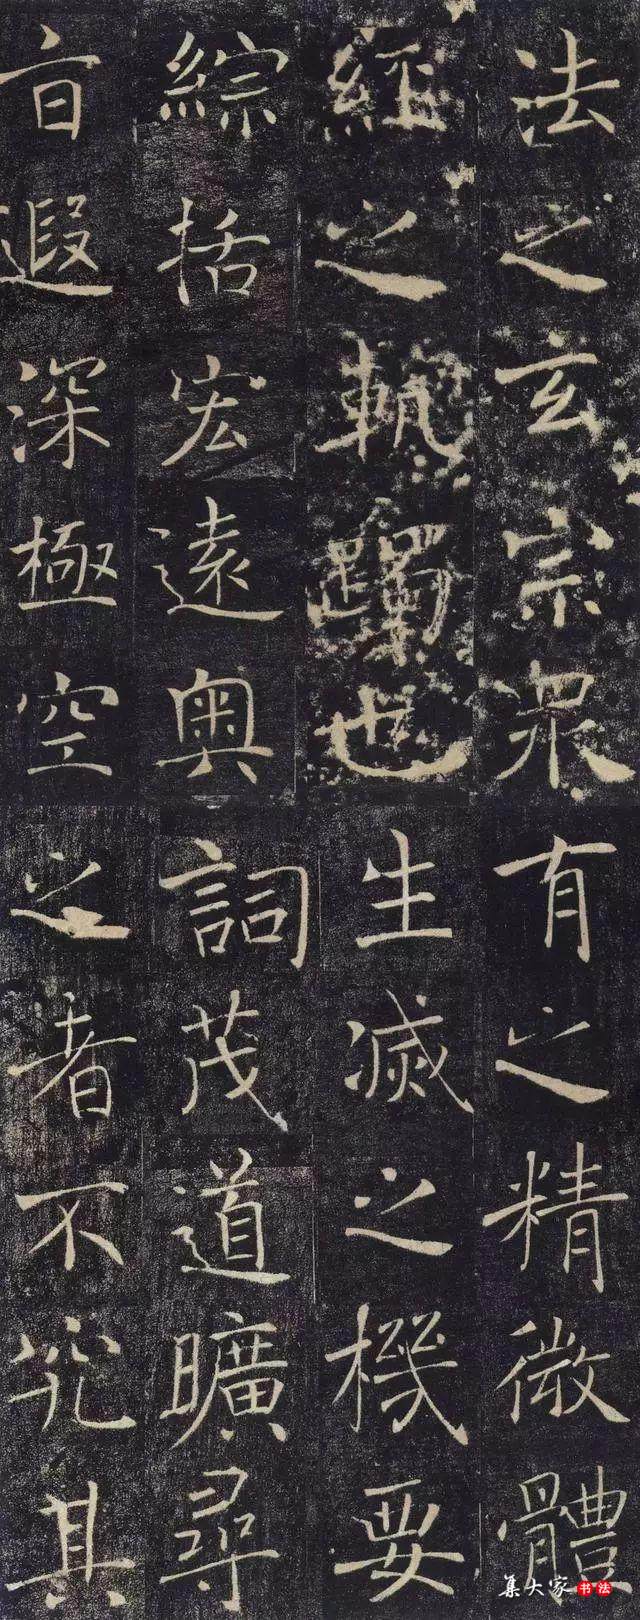 法之玄宗衆
經之軌躅也
綜括宏遠奧
旨遐深極空
有之精微體
生滅之機要
詞茂道曠尋
之者不究其
集大家书法